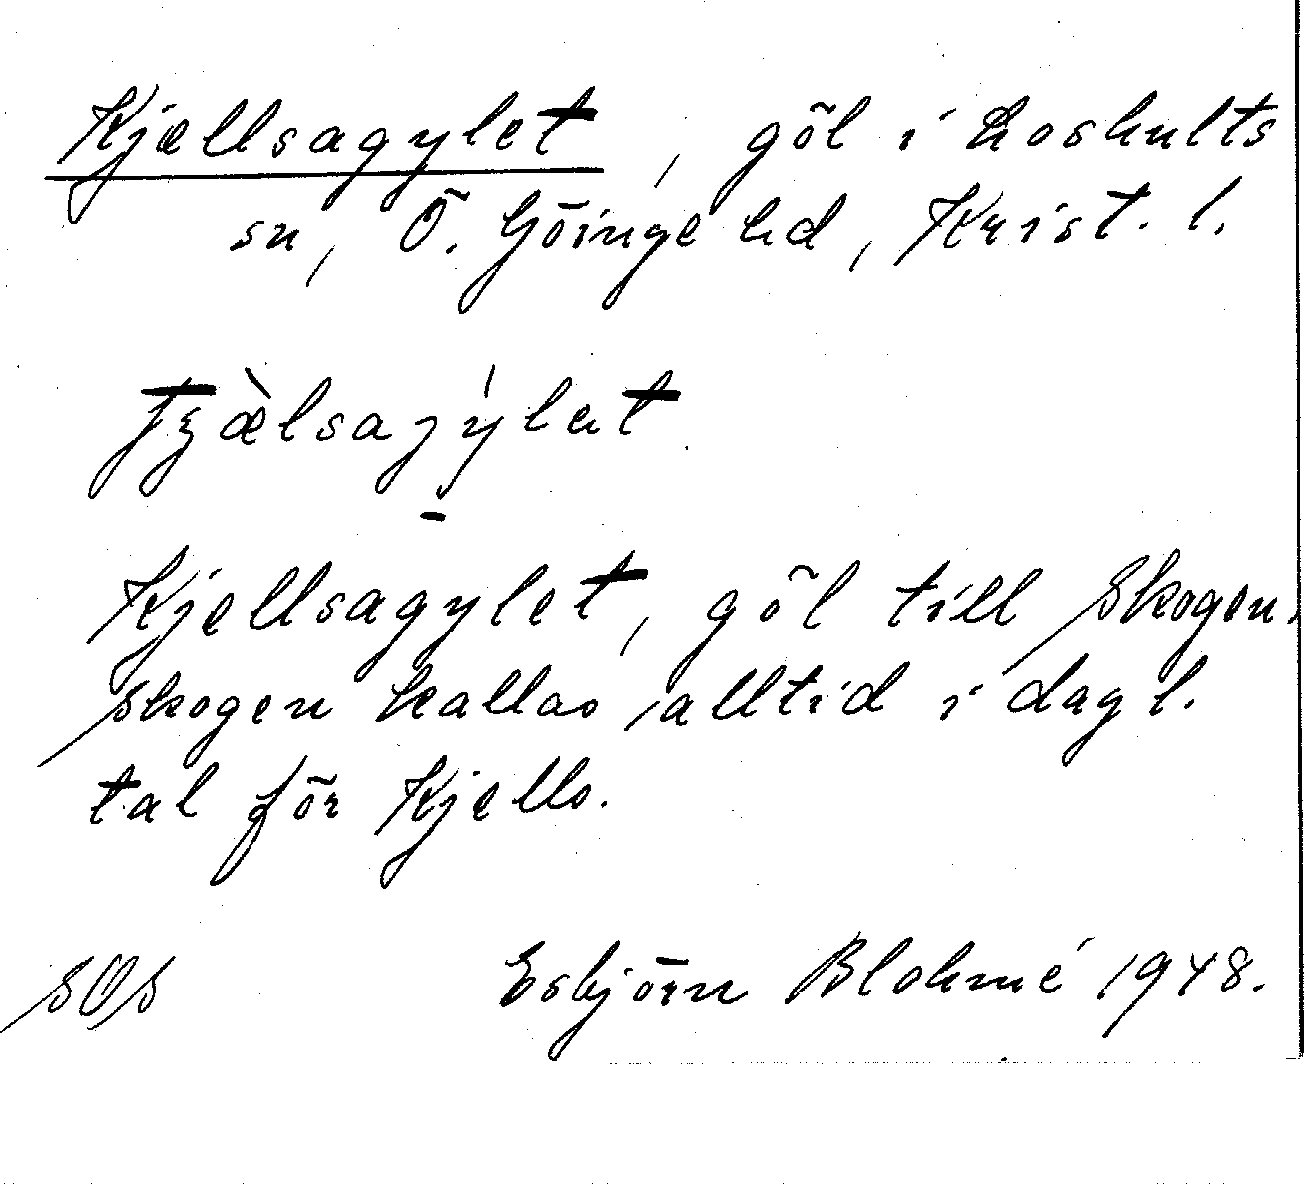 Kjællsagylet, göl i Loshults
sn, Ö. Göinge hd, Krist. l.
tʒæ̀lsaɟýlet
Kjellsagylet, göl till Skogen.
Skogen kallas alltid i dagl.
tal för Kjells.
SOS Esbjörn Blohmé 1948.